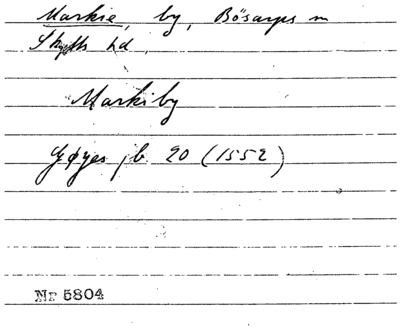 Markie, by, Bösarps sn
Skytts hd.
Markiby
Gøyes jb. 20 (1552)
Nr 5804